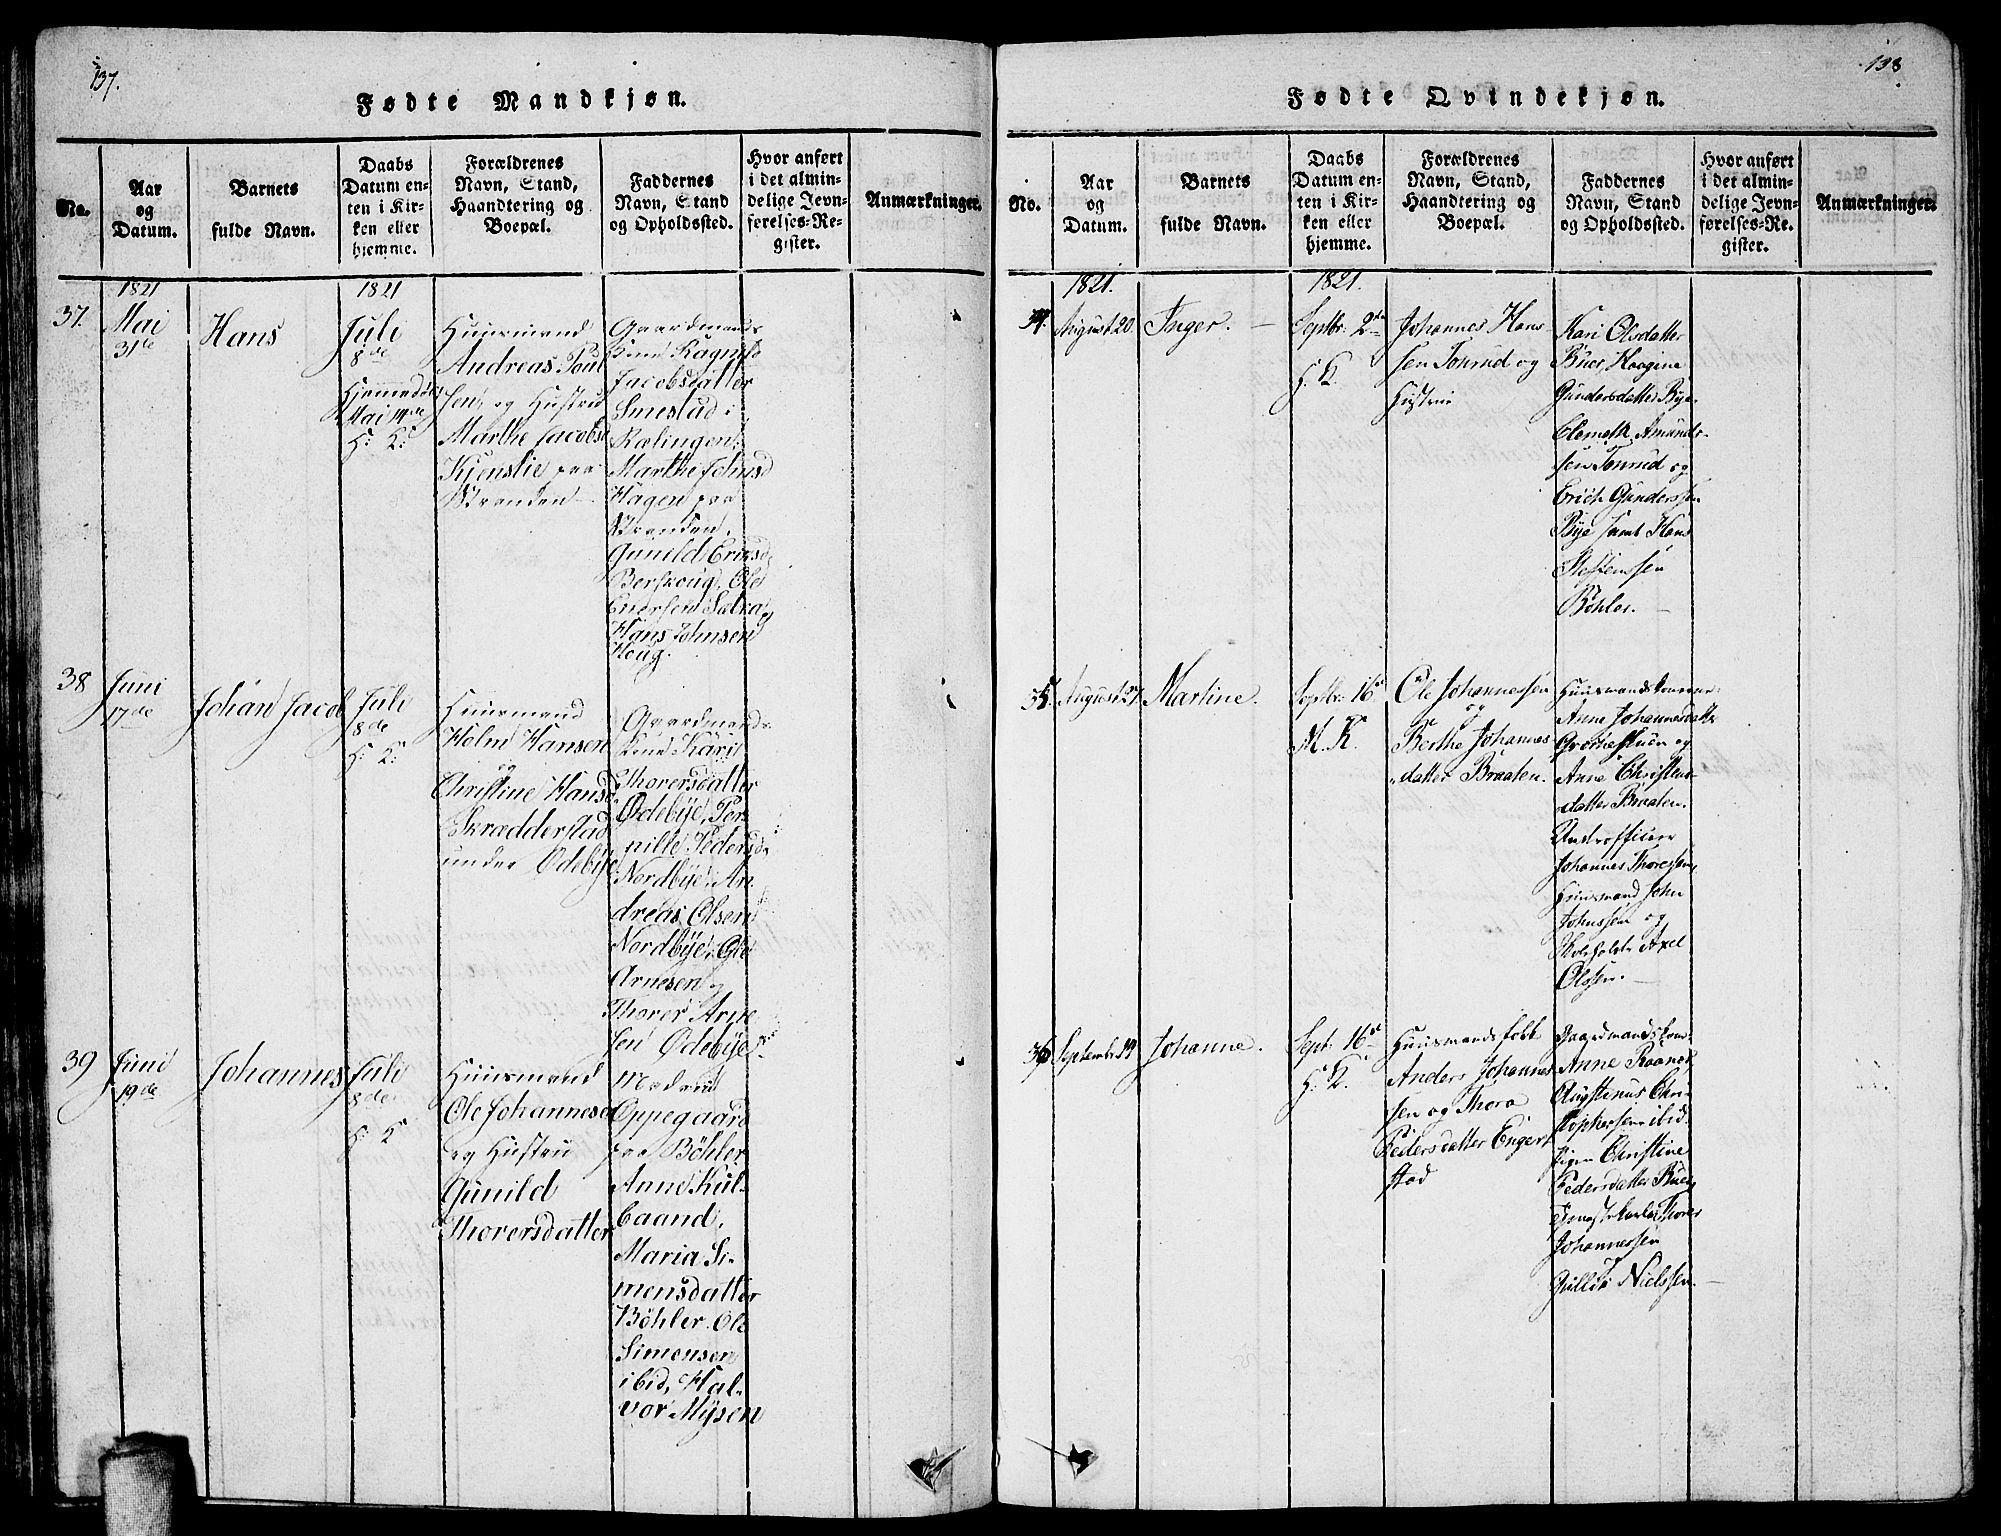 137.
Fødte Mandkjøn.
No.
Aar
og
Datum.
Barnets
fulde Navn.
Daabs
Datum en-
ten i Kir-
ken eller
hjemme.
Forældrenes
Navn, Stand,
Haandtering og
Boepæl.
Faddernes
Navn, Stand
og Opholdssted.
Hvor anført
i det almin-
delige Jevn-
førelses-Re-
gister.
Anmærkninger.
1821
1821
37.
Mai
31te
Hans
Juli
8de
Hjemmedøbt
Mai 14de
H: K:
Huusmand
Andreas Poul
sen og Hustru
Marthe Jacobsd
Kjenslie paa
Stranden
Gaardmands
kone Ragnild
Jacobsdatter
Smestad i
Rælingen,
Marthe Johnsd
Hagen paa
Stranden,
Gunild Eriksd.
Berskoug, Ole
Enersen Sætra og
Hans Johnsen
Houg.
38
Juni
17de
Johan Jacob
Juli
8de
H: K:
Huusmand
Holm Hansen
og
Christine Hansd.
Skrædderstad
under Ødebÿe
Gaardmands
kone Kari
Thorersdatter
Ødebÿe, Per-
nille Pedersd.
Nordbÿe, An-
dreas Olsen
Nordbÿe, Ole
Arnesen og
Thorer Arne
sen Ødebÿe
39
Juni
19de
Johannes
Juli
8de
H: K
Huusmand
Ole Johannesen
og Hustru
Gunild
Thorersdatter
Madam
Oppegaard
paa Böhler
Anne Kul-
baand,
Maria Si-
mensdatter
Böhler. Ole
Simensen
ibid, Hal-
vor Mÿsen
138
Fødte Qvindekjøn.
No.
Aar
og
Datum.
Barnets
fulde Navn.
Daabs
Datum en-
ten i Kir-
ken eller
hjemme.
Forældrenes
Navn, Stand,
Haandtering og
Boepæl.
Faddernes
Navn, Stand
og Opholdssted.
Hvor anført
i det almin-
delige Jevn-
førelses-Re-
gister.
Anmærkninger.
1821.
1821.
34.
August 20.
Inger.
Septbr: 2den
H: K.
Johannes Han-
sen Tonrud og
Hustrue
Kari Olsdatter
Buer, Haagine
Gundersdatter Bye
Clemeth Amunds-
sen Tonrud og
Erich Gunderssen
Bye samt Hans
Steffenssen
Böhler.
35.
August 27.
Martine.
Septbr: 16de
M. K.
Ole Johannessen
og
Berthe Johannes-
datter Braaten.
Huusmandskonerne
Anne Johannesdatter
og
Anne Christens-
datter Braaten.
Underofficier
Johannes Thoressen,
Huusmand John
Johnssen og
Axel
Olssen.
36
September
Johanne.
Sept: 16de
H: K.
Huusmandsfolk
Anders Johannes
sen og Thora
Pedersdatter Enger-
stad
Gaardmandskone
Anne Raanes
Augstinus Chri-
stophersen ibid.
Pigen Christine
Pedersdatter Buer,
Thorer
Johannessen
Nielssen.